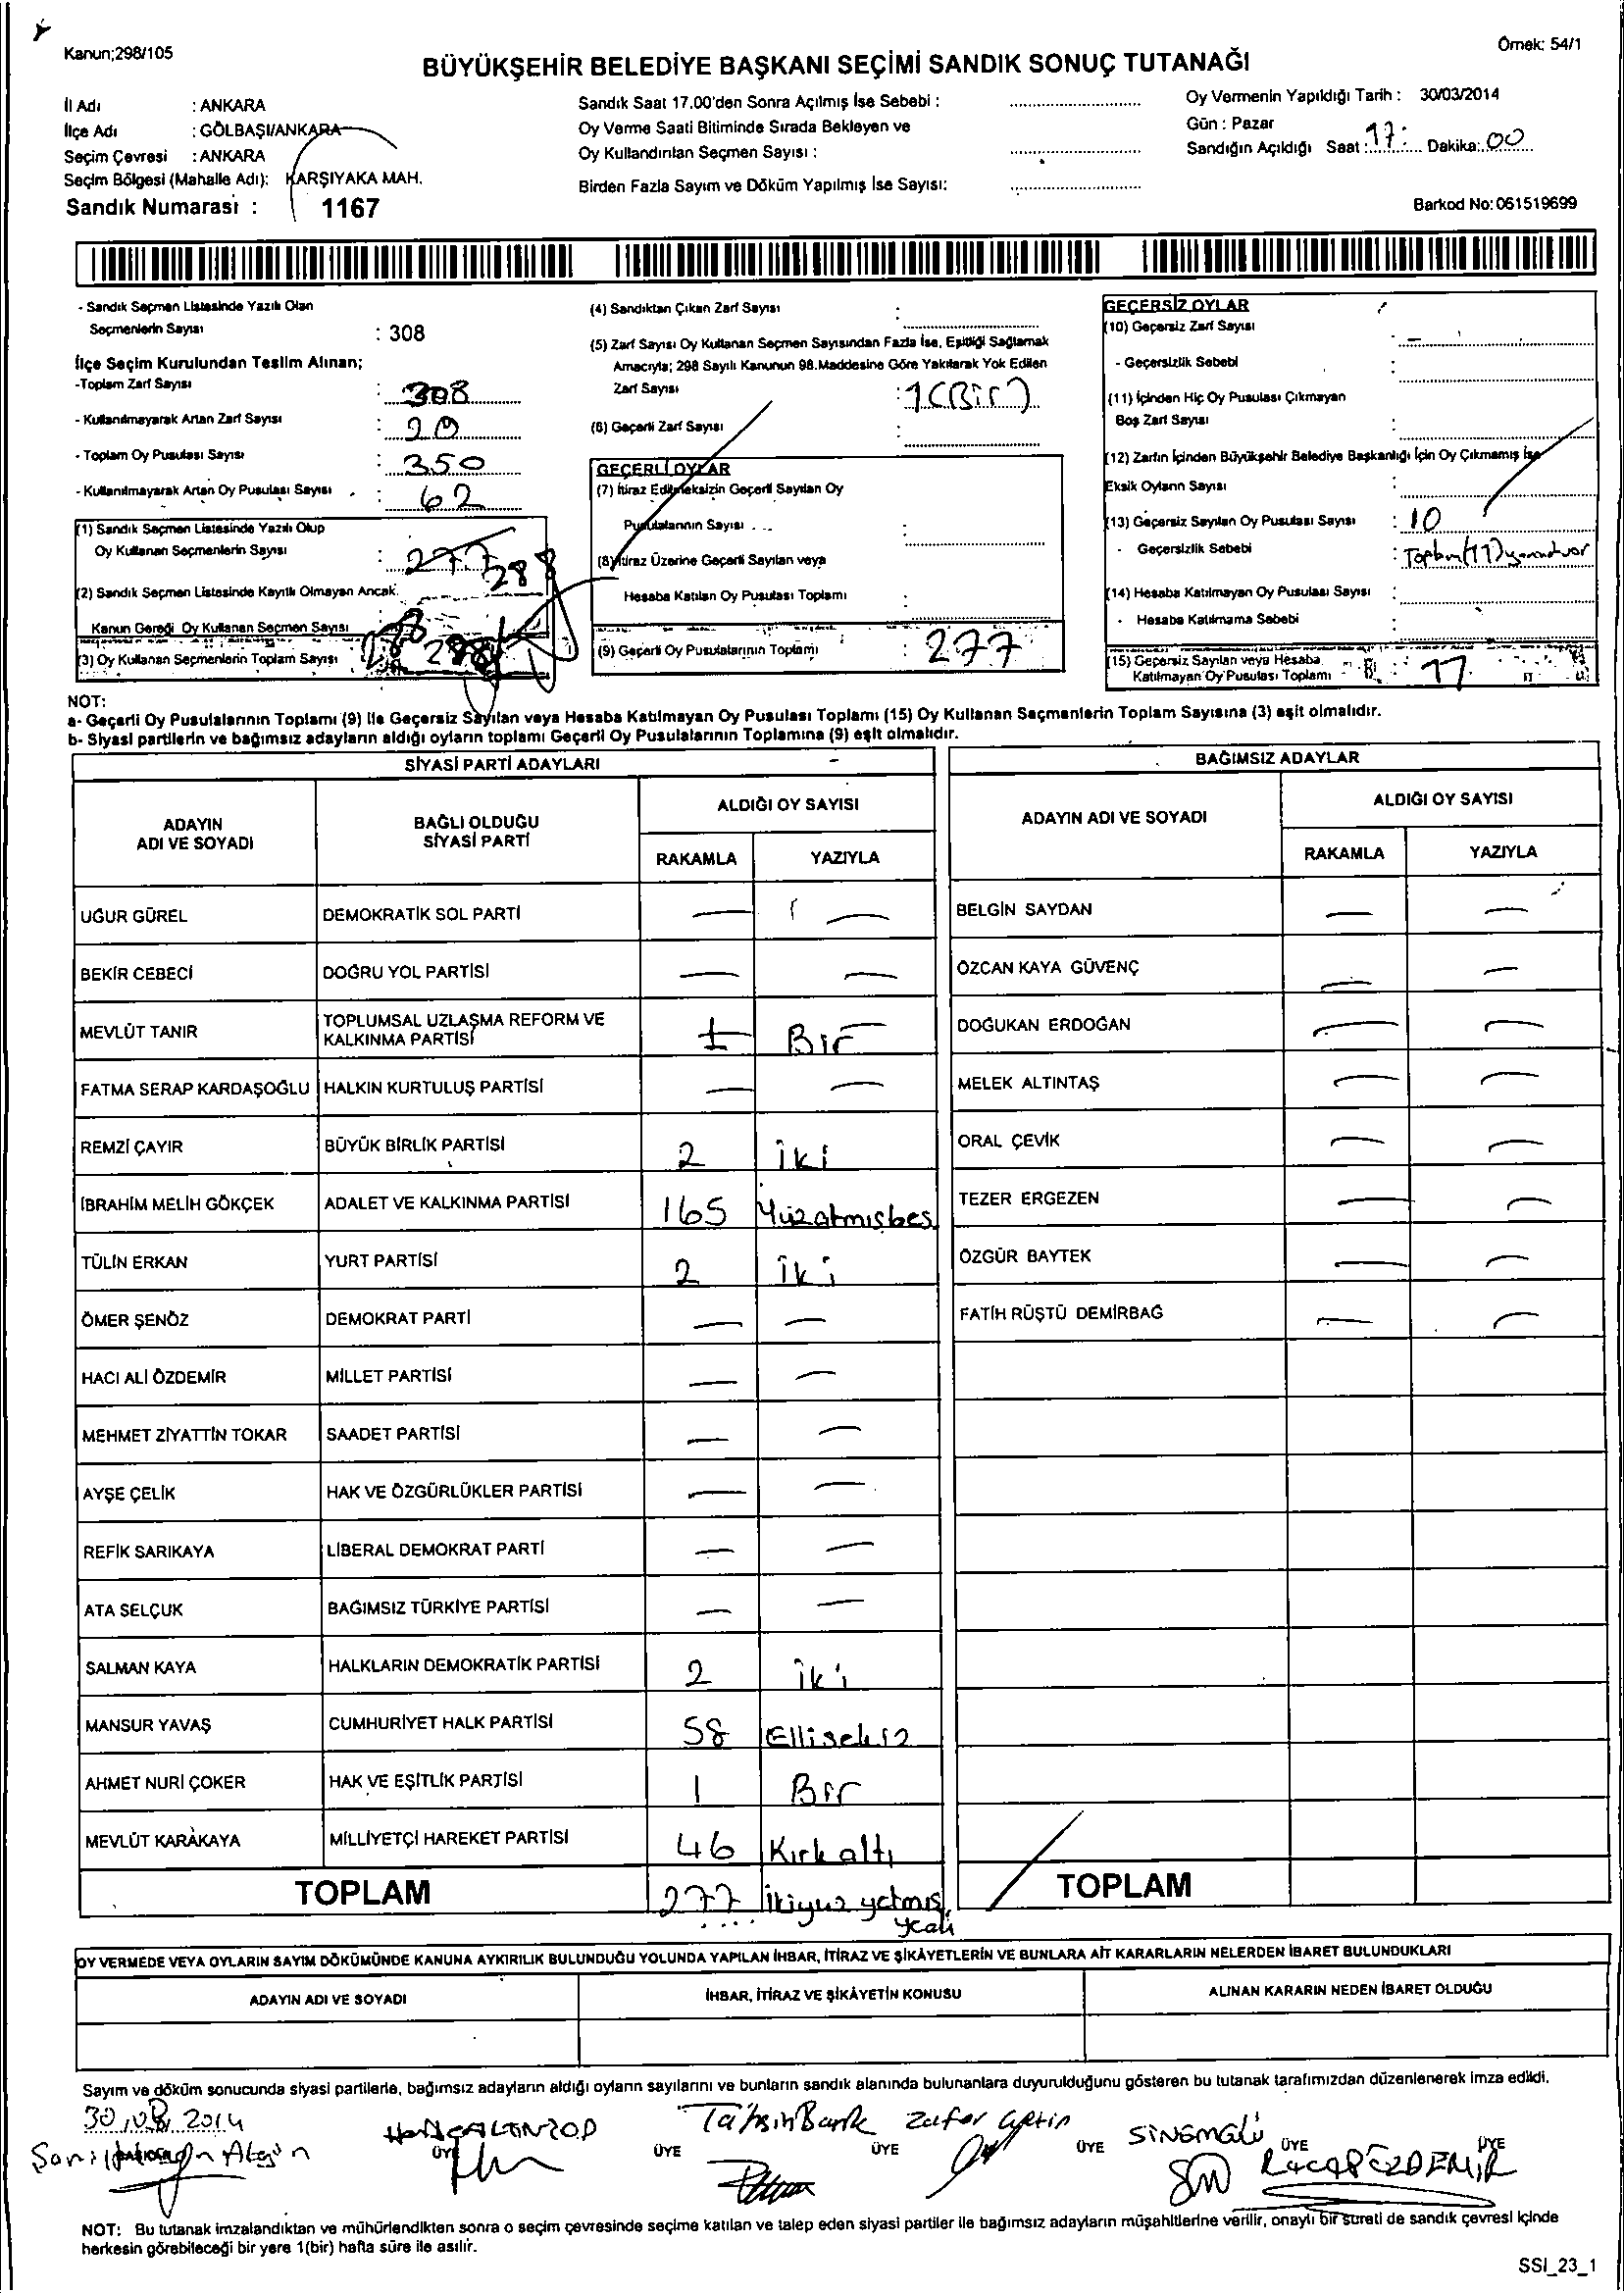 Kanun;298/105
Örnek: 54/1
BÜYÜKŞEHİR BELEDİYE BAŞKANI SEÇİMİ SANDIK SONUÇ TUTANAĞI
İl Adı : ANKARA
İlçe Adı : GÖLBAŞI/ANKARA
Seçim Çevresi : ANKARA
Seçim Bölgesi (Mahalle Adı): KARŞIYAKA MAH.
Sandık Numarasi : 1167
Sandık Saat 17.00'den Sonra Açılmış İse Sebebi :
Oy Verme Saati Bitiminde Sırada Bekleyen ve
Oy Kullandırılan Seçmen Sayısı :
Birden Fazla Sayım ve Döküm Yapılmış İse Sayısı:
Oy Vermenin Yapıldığı Tarih : 30/03/2014
Gün : Pazar
Sandığın Açıldığı Saat : 17: Dakika: 00
Barkod No: 061519699
- Sandık Seçmen Listesinde Yazılı Olan
Seçmenlerin Sayısı : 308
İlçe Seçim Kurulundan Teslim Alınan;
-Toplam Zarf Sayısı : 308
- Kullanılmayarak Artan Zarf Sayısı : 20
- Toplam Oy Pusulası Sayısı : 350
- Kullanılmayarak Artan Oy Pusulası Sayısı : 62
(1) Sandık Seçmen Listesinde Yazılı Olup
Oy Kullanan Seçmenlerin Sayısı : 277 288
(2) Sandık Seçmen Listesinde Kayıtlı Olmayan Ancak
Kanun Gereği Oy Kullanan Seçmen Sayısı
(3) Oy Kullanan Seçmenlerin Toplam Sayısı 288
(4) Sandıktan Çıkan Zarf Sayısı :
(5) Zarf Sayısı Oy Kullanan Seçmen Sayısından Fazla İse, Eşitliği Sağlamak
Amacıyla; 298 Sayılı Kanunun 98.Maddesine Göre Yakılarak Yok Edilen
Zarf Sayısı : 1 (Bir)
(6) Geçerli Zarf Sayısı :
GEÇERLİ OYLAR
(7) İtiraz Edilmeksizin Geçerli Sayılan Oy
Pusulalarının Sayısı :
(8) İtiraz Üzerine Geçerli Sayılan veya
Hesaba Katılan Oy Pusulası Toplamı :
(9) Geçerli Oy Pusulalarının Toplamı : 277
GEÇERSİZ OYLAR
(10) Geçersiz Zarf Sayısı : -
- Geçersizlik Sebebi :
(11) İçinden Hiç Oy Pusulası Çıkmayan
Boş Zarf Sayısı :
(12) Zarfın İçinden Büyükşehir Belediye Başkanlığı İçin Oy Çıkmamış İse
Eksik Oyların Sayısı :
(13) Geçersiz Sayılan Oy Pusulası Sayısı : 10
- Geçersizlik Sebebi : Toplam (11)
(14) Hesaba Katılmayan Oy Pusulası Sayısı :
- Hesaba Katılmama Sebebi :
(15) Geçersiz Sayılan veya Hesaba
Katılmayan Oy Pusulası Toplamı : 11
NOT:
a- Geçerli Oy Pusulalarının Toplamı (9) ile Geçersiz Sayılan veya Hesaba Katılmayan Oy Pusulası Toplamı (15) Oy Kullanan Seçmenlerin Toplam Sayısına (3) eşit olmalıdır.
b- Siyasi partilerin ve bağımsız adayların aldığı oyların toplamı Geçerli Oy Pusulalarının Toplamına (9) eşit olmalıdır.
SİYASİ PARTİ ADAYLARI
BAĞIMSIZ ADAYLAR
ADAYIN ADI VE SOYADI
BAĞLI OLDUĞU SİYASİ PARTİ
ALDIĞI OY SAYISI
RAKAMLA YAZIYLA
ADAYIN ADI VE SOYADI
ALDIĞI OY SAYISI
RAKAMLA YAZIYLA
UĞUR GÜREL DEMOKRATİK SOL PARTİ — — BELGİN SAYDAN — —
BEKİR CEBECİ DOĞRU YOL PARTİSİ — — ÖZCAN KAYA GÜVENÇ — —
MEVLÜT TANIR TOPLUMSAL UZLAŞMA REFORM VE KALKINMA PARTİSİ 1 Bir DOĞUKAN ERDOĞAN — —
FATMA SERAP KARDAŞOĞLU HALKIN KURTULUŞ PARTİSİ — — MELEK ALTINTAŞ — —
REMZİ ÇAYIR BÜYÜK BİRLİK PARTİSİ 2 İki ORAL ÇEVİK — —
İBRAHİM MELİH GÖKÇEK ADALET VE KALKINMA PARTİSİ 165 Yüzatmışbeş TEZER ERGEZEN — —
TÜLİN ERKAN YURT PARTİSİ 2 İki ÖZGÜR BAYTEK — —
ÖMER ŞENÖZ DEMOKRAT PARTİ — — FATİH RÜŞTÜ DEMİRBAĞ — —
HACI ALİ ÖZDEMİR MİLLET PARTİSİ — —
MEHMET ZİYATTİN TOKAR SAADET PARTİSİ — —
AYŞE ÇELİK HAK VE ÖZGÜRLÜKLER PARTİSİ — —
REFİK SARIKAYA LİBERAL DEMOKRAT PARTİ — —
ATA SELÇUK BAĞIMSIZ TÜRKİYE PARTİSİ — —
SALMAN KAYA HALKLARIN DEMOKRATİK PARTİSİ 2 İki
MANSUR YAVAŞ CUMHURİYET HALK PARTİSİ 58 Ellisekiz
AHMET NURİ ÇOKER HAK VE EŞİTLİK PARTİSİ 1 Bir
MEVLÜT KARAKAYA MİLLİYETÇİ HAREKET PARTİSİ 46 Kırkaltı
TOPLAM 277 İkiyüz yetmiş yedi TOPLAM
OY VERMEDE VEYA OYLARIN SAYIM DÖKÜMÜNDE KANUNA AYKIRILIK BULUNDUĞU YOLUNDA YAPILAN İHBAR, İTİRAZ VE ŞİKÂYETLERİN VE BUNLARA AİT KARARLARIN NELERDEN İBARET BULUNDUKLARI
ADAYIN ADI VE SOYADI İHBAR, İTİRAZ VE ŞİKÂYETİN KONUSU ALINAN KARARIN NEDEN İBARET OLDUĞU
Sayım ve döküm sonucunda siyasi partilerle, bağımsız adayların aldığı oyların sayılarını ve bunların sandık alanında bulunanlara duyurulduğunu gösteren bu tutanak tarafımızdan düzenlenerek imza edildi.
Zafer
ÜYE ÜYE ÜYE ÜYE ÜYE ÜYE
NOT: Bu tutanak imzalandıktan ve mühürlendikten sonra o seçim çevresinde seçime katılan ve talep eden siyasi partiler ile bağımsız adayların müşahitlerine verilir, onaylı bir sureti de sandık çevresi içinde
herkesin görebileceği bir yere 1(bir) hafta süre ile asılır.
SSI_23_1